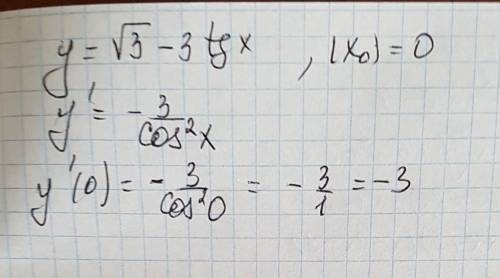 y = √3 − 3 tg x , (x₀) = 0
y' = − 3/cos²x
y'(0) = − 3/cos²0 = − 3/1 = −3